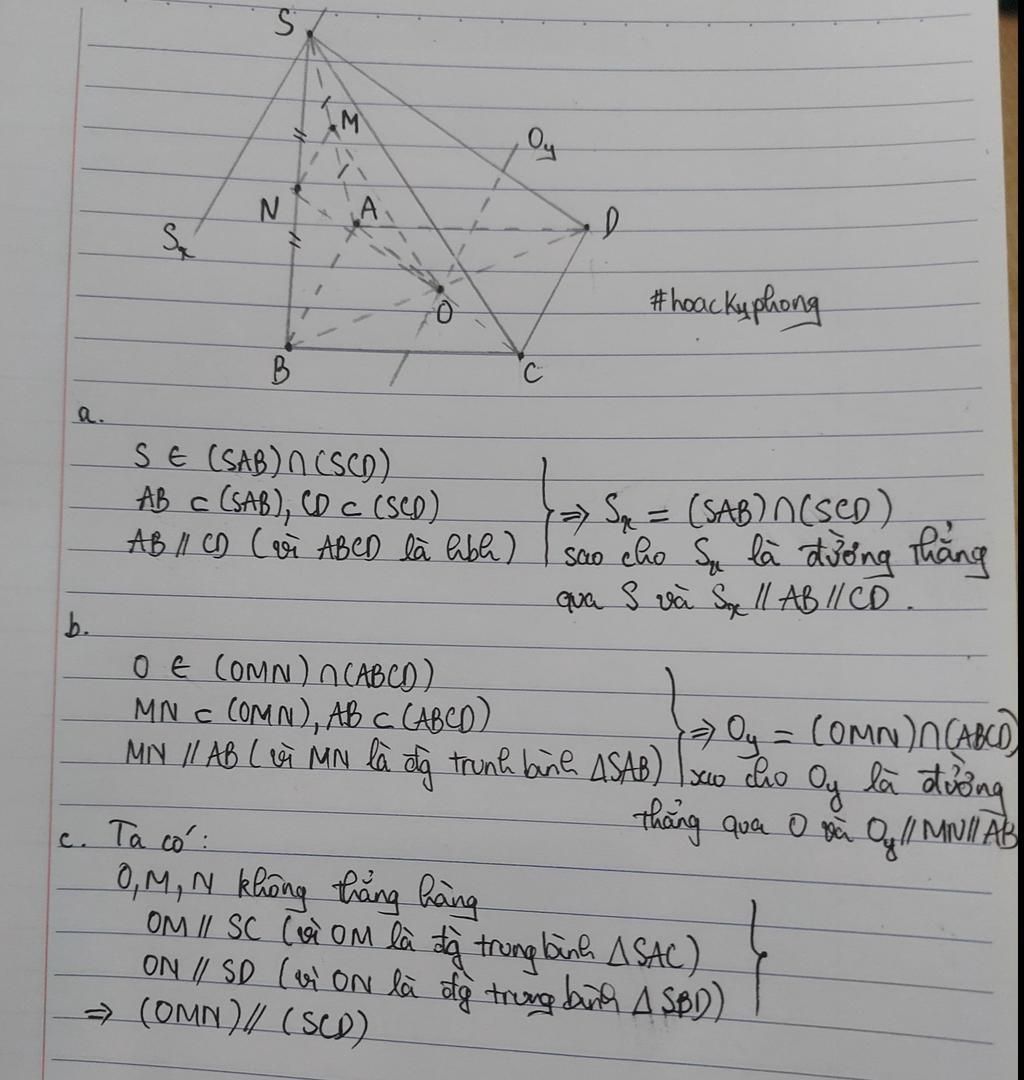 S
M
Oy
N
A
D
Sx
O
#hoackyphong
B
C
a.
S ∈ (SAB)∩(SCD)
AB ⊂ (SAB), CD ⊂ (SCD)
AB // CD (vì ABCD là hbh)
⇒ Sx = (SAB)∩(SCD)
sao cho Sx là đường thẳng
qua S và Sx // AB // CD.
b.
O ∈ (OMN)∩(ABCD)
MN ⊂ (OMN), AB ⊂ (ABCD)
MN // AB (vì MN là đg trunh bình ΔSAB)
⇒ Oy = (OMN)∩(ABCD)
sao cho Oy là đường
thẳng qua O và Oy // MN // AB
c. Ta có:
O, M, N không thẳng hàng
OM // SC (vì OM là đg trung bình ΔSAC)
ON // SD (vì ON là đg trung bình ΔSBD)
⇒ (OMN) // (SCD)